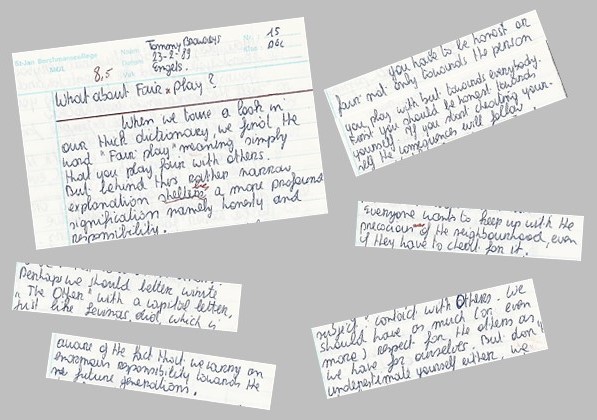 St-Jan Berchmanscollege
Naam: Tommy Beauduys
Datum: 23-2-89
Vak: Engels.
Nr.: 15
Klas:
8,5
What about Fair play?
When we have a look in
our thick dictionary, we find the
word "Fair play" meaning simply
that you play fair with others.
But behind this rather narrow
explanation shelters a more profound
signification namely honesty and
responsibility.
you have to be honest or
fair not only towards the person
you play with but towards everybody.
First you should be honest towards
yourself. If you start cheating your-
self the consequences will follow.
Everyone wants to keep up with the
of the neighbourhood, even
if they have to cheat for it.
Perhaps we should better write
"The Other" with a capital letter,
just like Levinas did, which is
aware of the fact that we carry an
enormous responsibility towards the
future generations.
subject: contact with Others. We
should have as much (or even
more) respect for the others as
we have for ourselves. But don't
underestimate yourself either, we